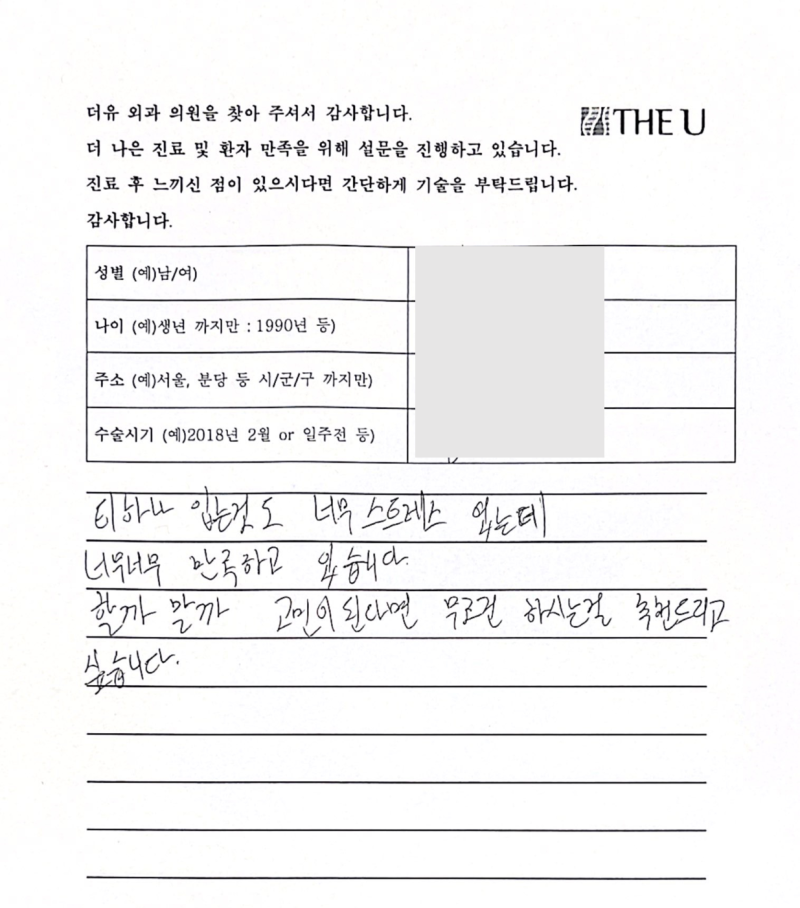 더유 외과 의원을 찾아 주셔서 감사합니다.
THE U
더 나은 진료 및 환자 만족을 위해 설문을 진행하고 있습니다.
진료 후 느끼신 점이 있으시다면 간단하게 기술을 부탁드립니다.
감사합니다.
성별 (예)남/여)
나이 (예)생년 까지만 : 1990년 등)
주소 (예)서울, 분당 등 시/군/구 까지만)
수술시기 (예)2018년 2월 or 일주전 등)
티하나 입는것도 너무 스트레스 였는데
너무너무 만족하고 있습니다.
할까 말까 고민이 된다면 무조건 하시는걸 추천드리고
싶습니다.